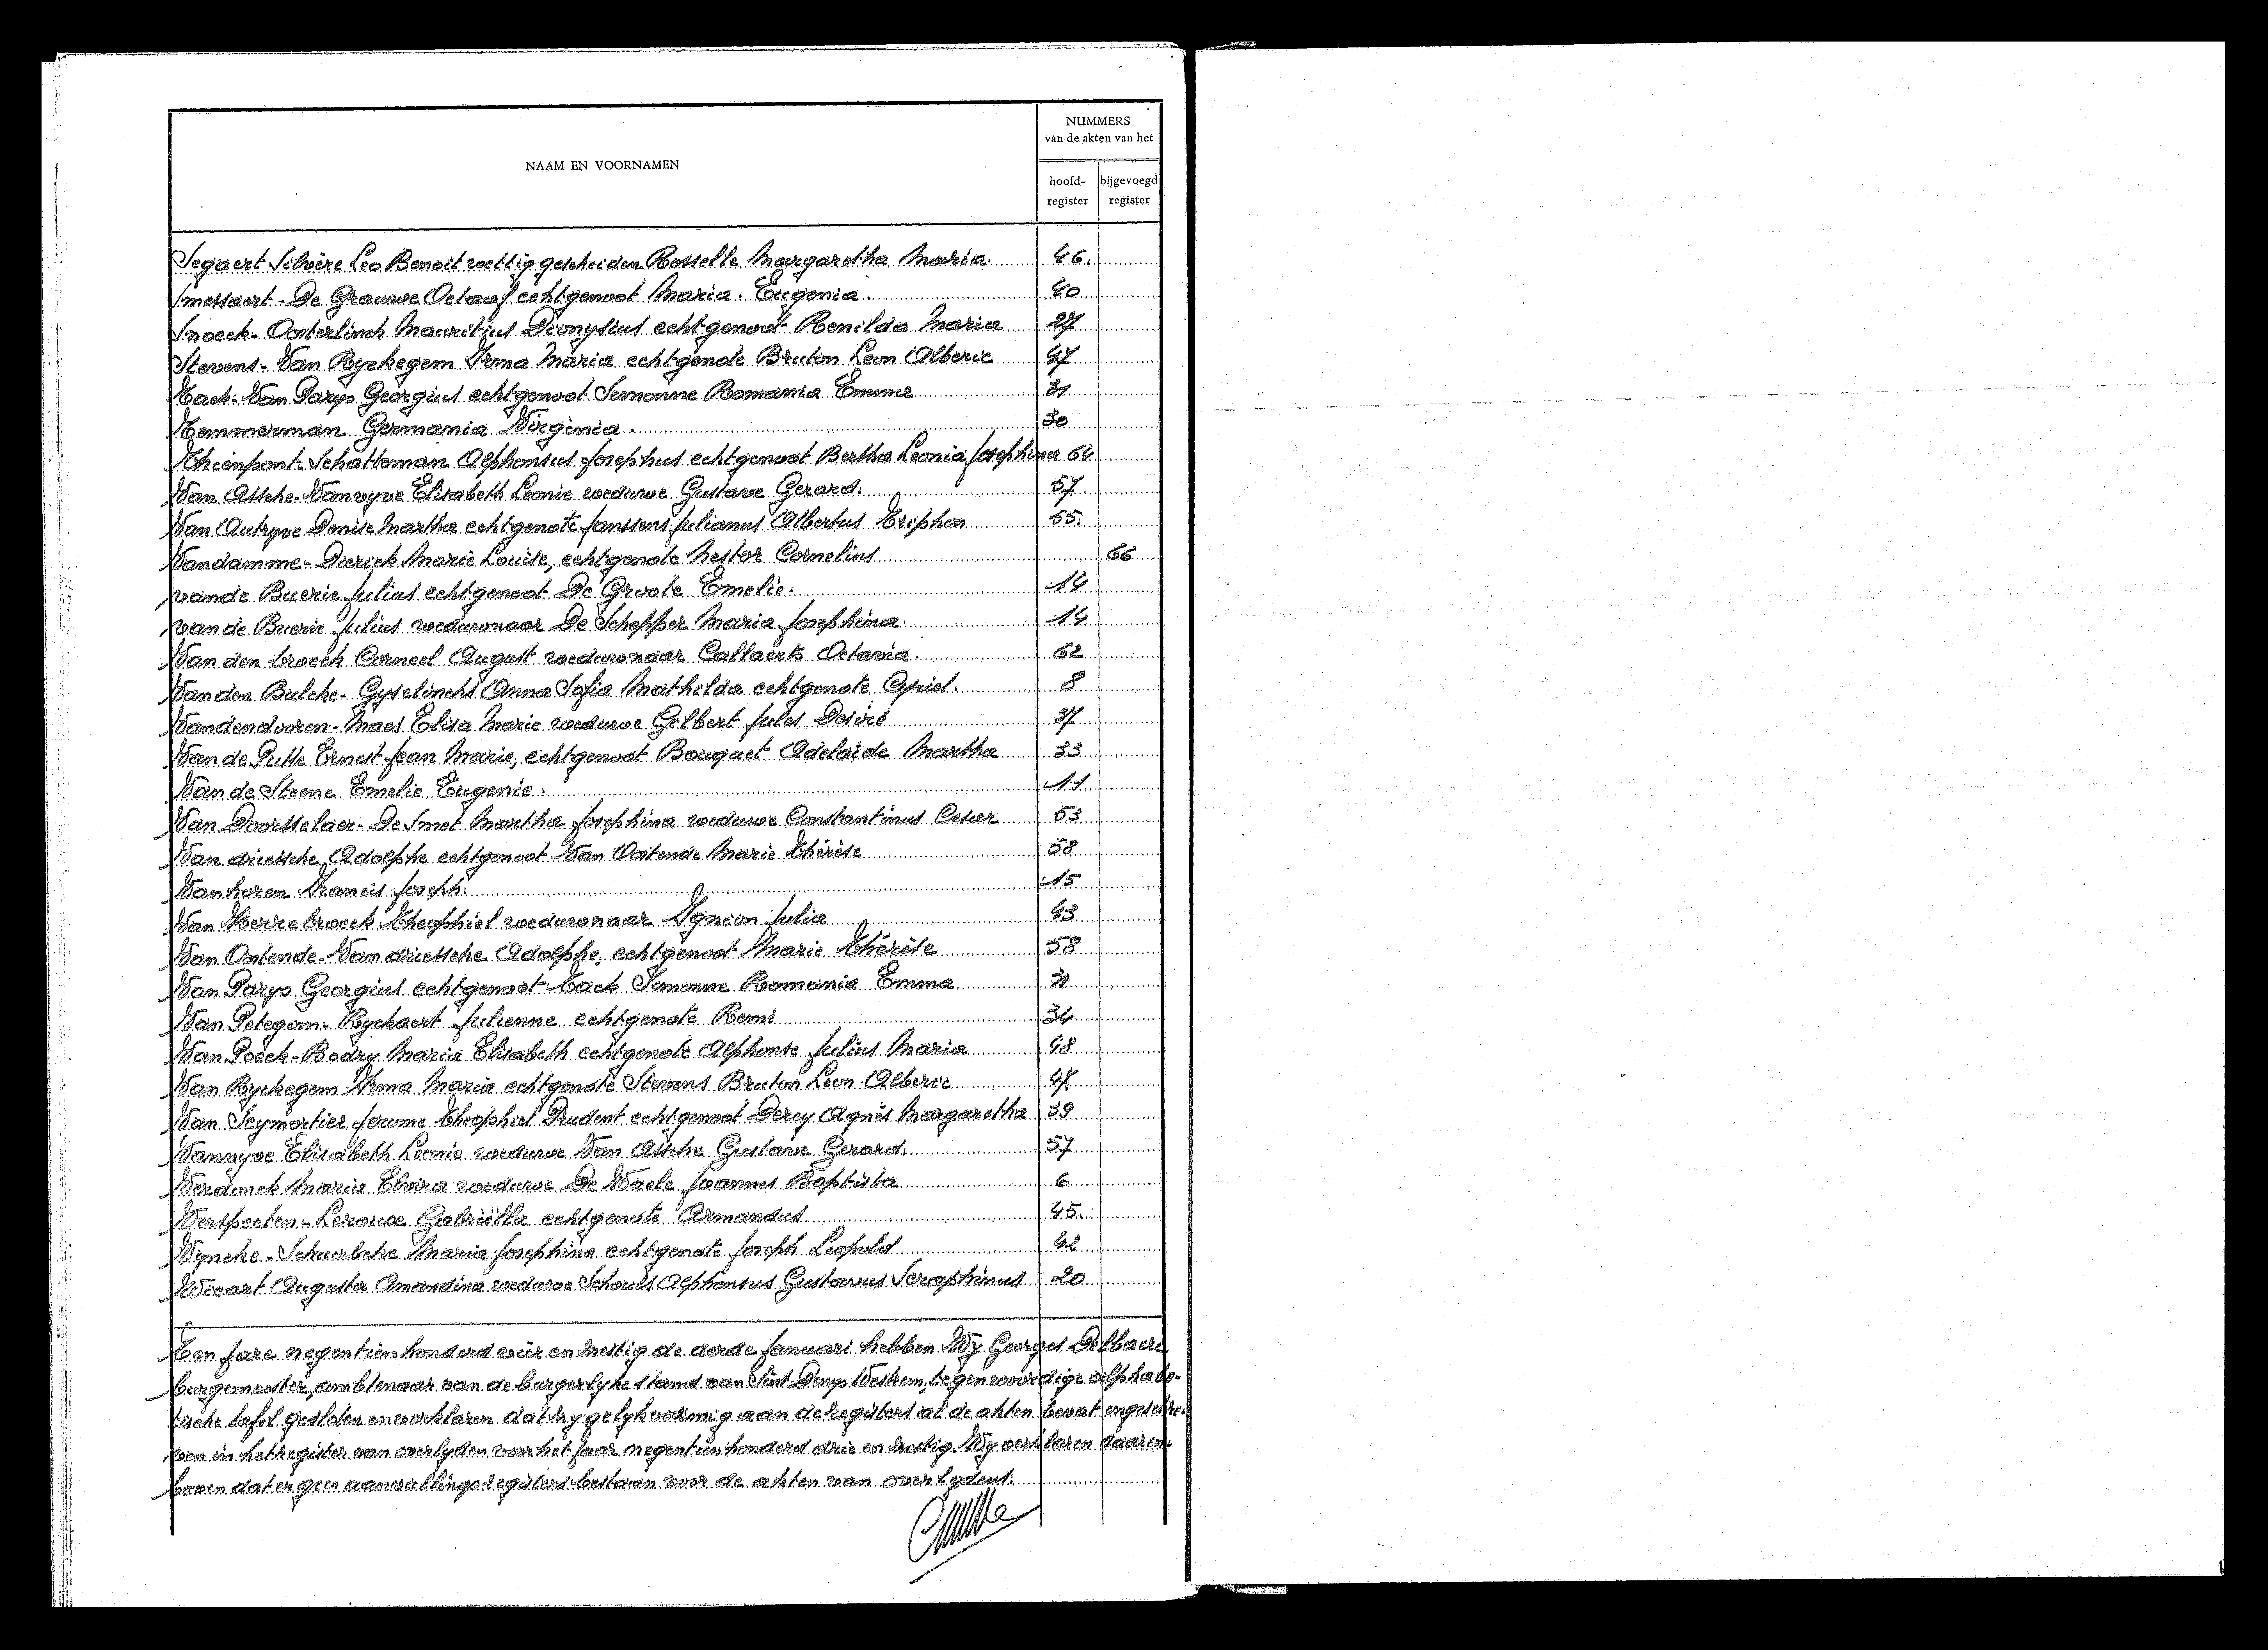 NAAM EN VOORNAMEN
NUMMERS
van de akten van het
hoofd-
register
bijgevoegd
register
Segaert Silvère Leo Benoit wettig gescheiden Rosselle Margaretha Maria. 46.
Smessaert - De Grauwe Octaaf echtgenoot Maria. Eugenia. 40
Snoeck - Oosterlinck Mauritius Dionysius echtgenoot Renilda Maria 27
Stevens - Van Ryckegem Irma Maria echtgenote Bruton Leon Alberic 47
Tack - Van Parys Georgius echtgenoot Simonne Romania Emma 31
Temmerman Germania Virginia. 30
Thienpont - Schatteman Alphonsus Josephus echtgenoot Bertha Leonia Josephina 64
Van Assche - Vanwyve Elisabeth Leonie weduwe Gustave Gerard. 57
Van Autryve Denise Martha echtgenote Janssens Julianus Albertus Triphon 55.
Vandamme - Dierick Marie Louise, echtgenote Nestor Cornelius 66
van de Buerie Julius echtgenoot De Groote Emelie. 14
van de Buerie Julius weduwnaar De Schepper Maria Josephina. 14
Van den broeck Corneel August weduwnaar Callaerts Octavia. 62
Van den Bulcke - Gyselinckx Anna Sofia Mathilda echtgenote Cyriel. 8
Vandendooren - Maes Elisa Marie weduwe Gilbert Jules Desiré 37
Van de Putte Ernest Jean Marie, echtgenoot Bouquet Adelaïde Martha 33
Van de Steene Emelie Eugenie. 11
Van Doorsselaer - De Smet Martha Josephina weduwe Constantinus Cesar 53
Van driessche Adolphe echtgenoot Van Oostende Marie Thérèse 58
Van keren Francis Joseph. 15
Van Merrebroeck Theophiel weduwnaar Julia 43
Van Oostende - Van driessche Adolphe, echtgenoot Marie Thérèse 58
Van Parys Georgius echtgenoot Tack Simonne Romania Emma 31
Van Petegem - Ryckaert Julienne echtgenote Remi 34
Van Poeck - Bodry Maria Elisabeth echtgenote Alphonse Julius Maria 48
Van Ryckegem Irma Maria echtgenote Stevens Bruton Leon Alberic 47
Van Seymortier Jerome Theophiel Prudent echtgenoot Derey Agnès Margaretha 39
Vanwyve Elisabeth Leonie weduwe Van Assche Gustave Gerard. 57
Verdonck Maria Elvira weduwe De Waele Joannes Baptista 6
Verspeeten - Leroux Gabriëlla echtgenote Armandus 45.
Vyncke - Schaerlcke Maria Josephina echtgenote Joseph Leopold 42
Wicart Augusta Amandina weduwe Schouls Alphonsus Gustavus Seraphinus 20
Ten jare negentienhonderd vier en zestig de derde Januari hebben Wy Georges Delbaere
burgemeester, ambtenaar van de burgerlyke stand van Sint Denys Westrem, tegenwoordige alphabe-
tische tafel gesloten en verklaren dat zy gelykvormig aan de registers al de akten bevat ingeschre-
ven in het register van overlyden voor het jaar negentienhonderd drie en zestig. Wy verklaren daaren-
boven dat er geen aanvullingsregisters bestaan voor de akten van overlydens.